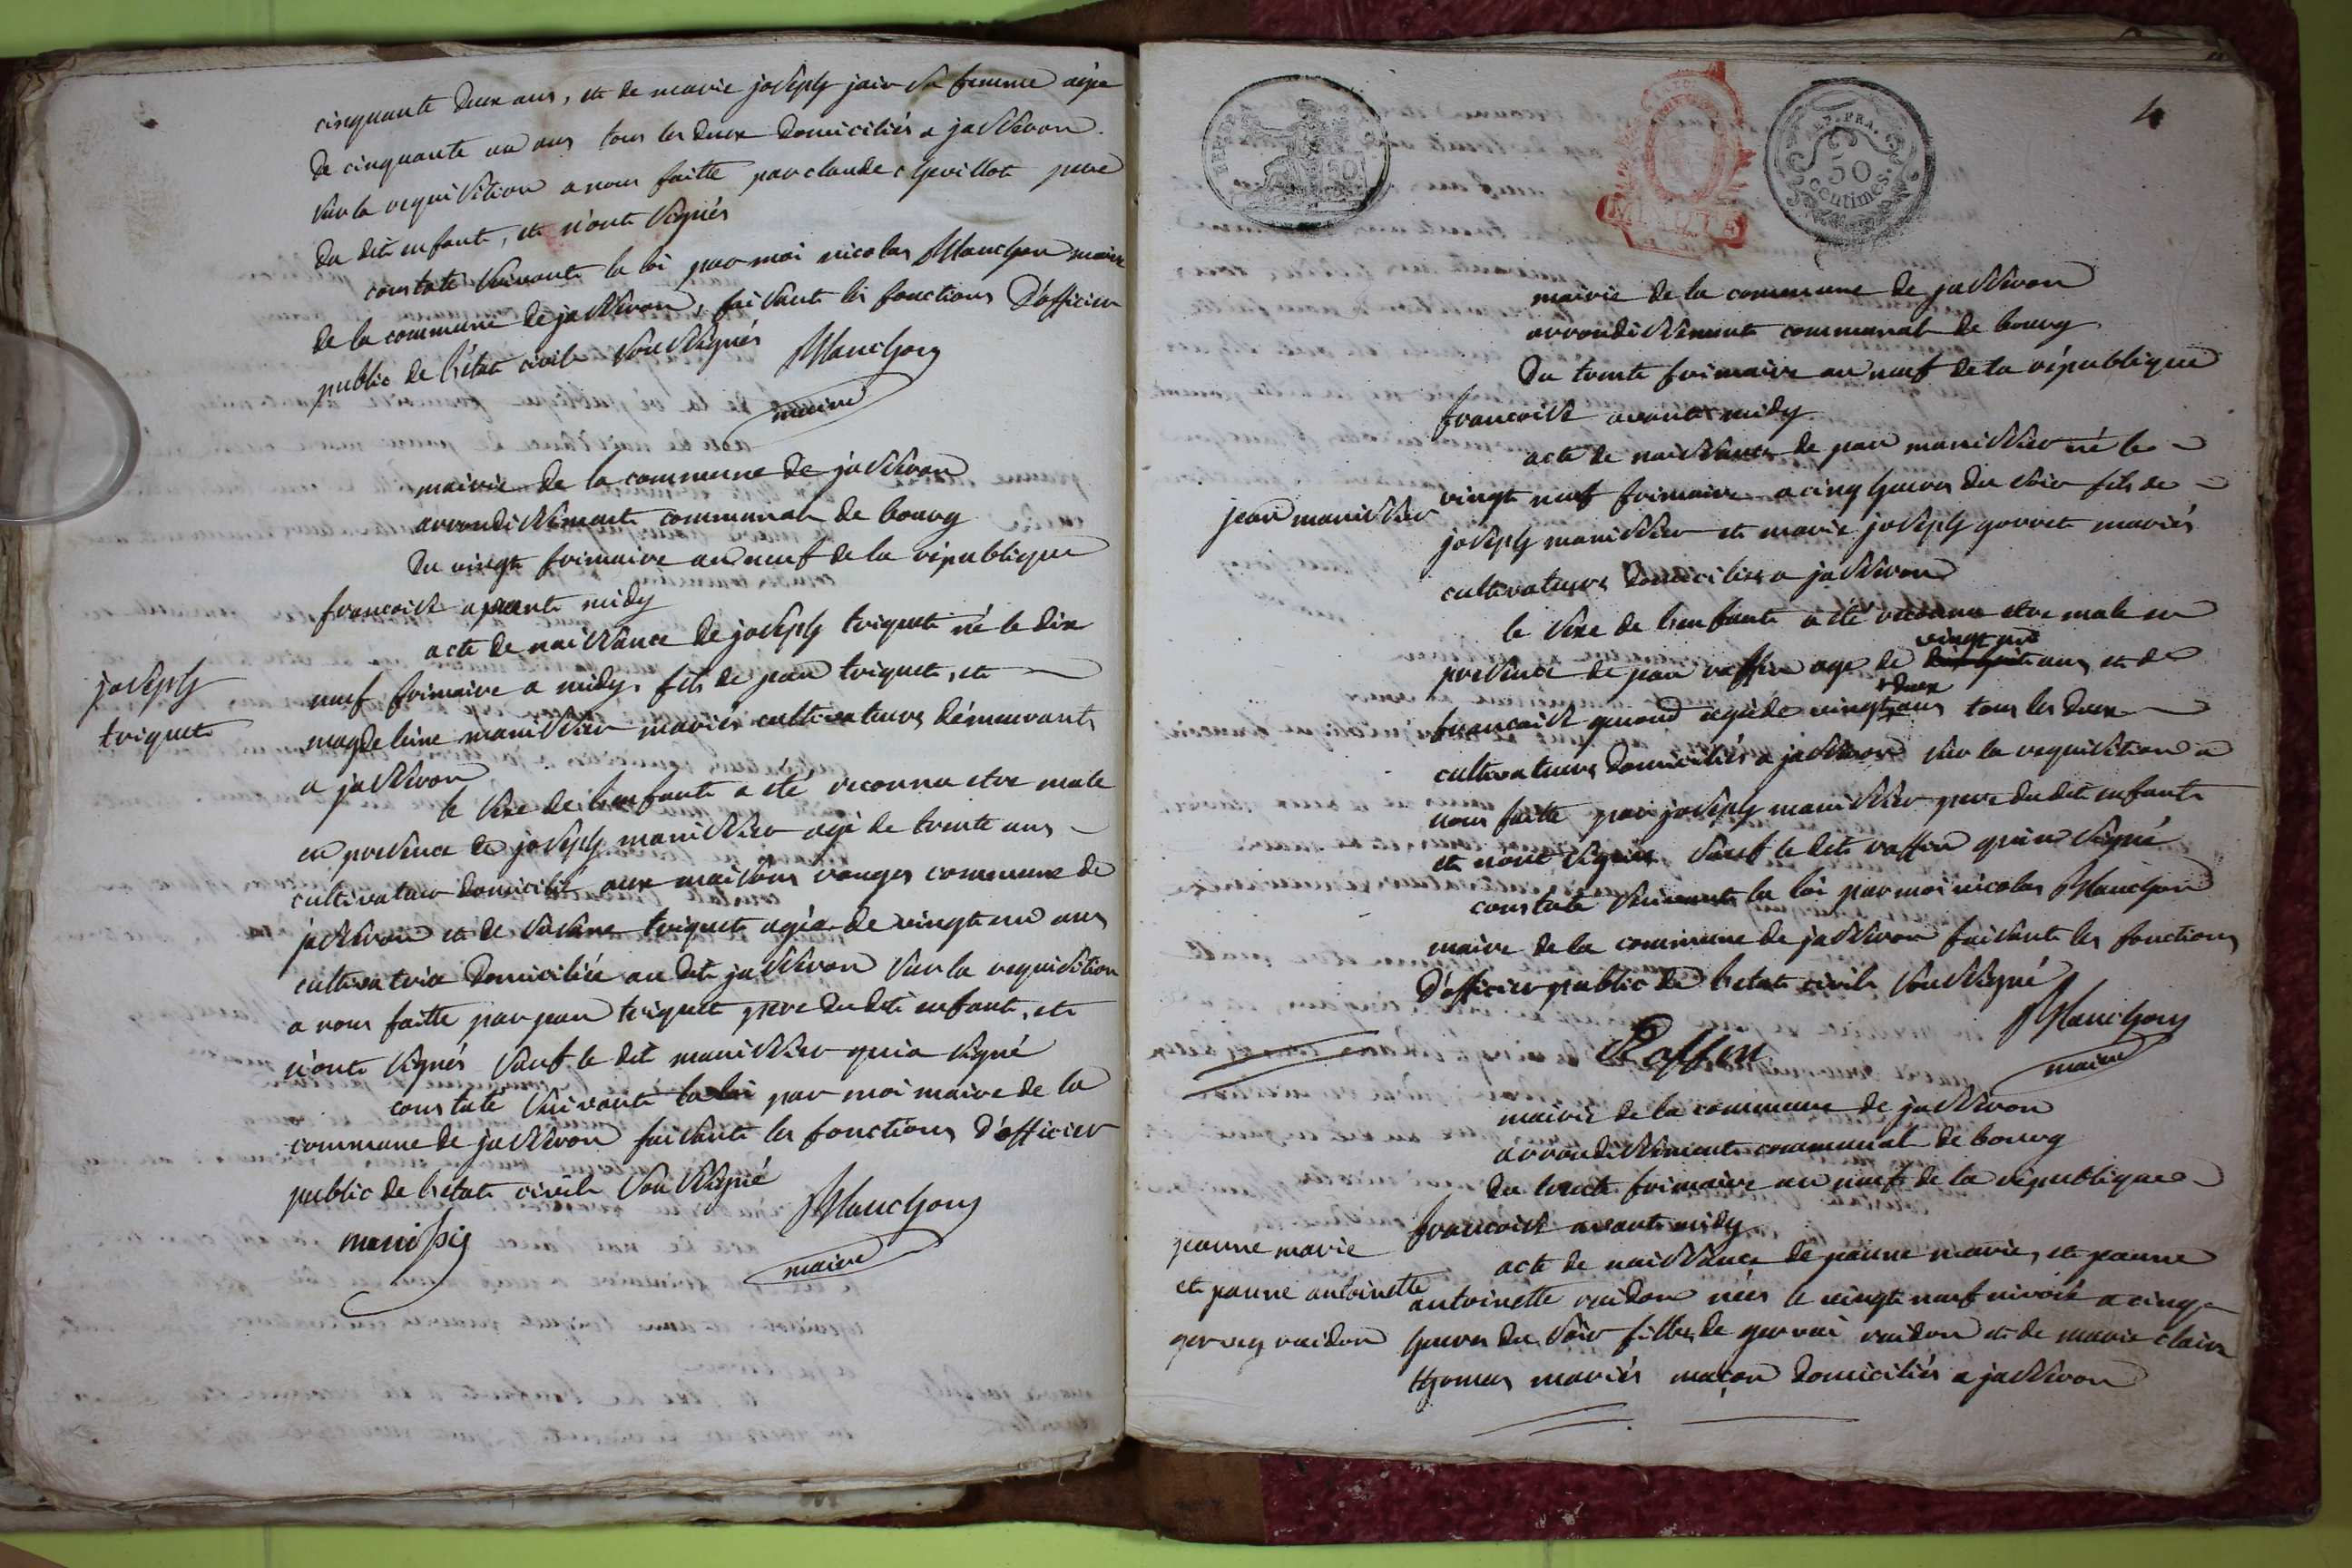 cinquante deux ans, et de marie joseph jair sa femme agée
de cinquante un ans tous les deux domiciliés a jasseron
sur la requisition a nous faitte par claude chevillot pere
du dit enfant, et n'ont signés
constaté suivant la loi par moi nicolas Manchon maire
de la commune de jasseron, faisant les fonctions d'officier
public de l'état civile soussignés
maire
mairie de la commune de jasseron
arrondissement communal de bourg
du vingt frimaire an neuf de la république
francoise avant midy
acte de naissance de joseph triquet né le dix
joseph
triquet
neuf frimaire a midy, fils de jean triquet, et
magdeleine manissier mariés cultivateurs démeurants
a jasseron
le sexe de l'enfant a été reconnu etre male
en presence de joseph manissier agé de trente ans
cultivateur domicilié aux maisons rouges commune de
jasseron et de susane triquet agée de vingt un ans
cultivatrice domiciliée au dit jasseron sur la requisition
a nous faitte par jean triquet pere du dit enfant, et
n'ont signés sauf le dit manissier qui a signé
constaté suivant la loi par moi maire de la
commune de jasseron faisant les fonctions d'officier
public de l'etat civile soussigné
manissie
maire
4
REP. FRA.
50
centimes.
MINUTE
mairie de la commune de jasseron
arrondissement communal de bourg
du trente frimaire an neuf de la république
francoise avant midy
acte de naissance de jean manissier né le
jean manissier
vingt neuf frimaire a cinq heures du soir fils de
joseph manissier et marie joseph gorret mariés
cultivateurs domiciliés a jasseron
le sexe de l'enfant a été reconnu etre male en
presence de jean raffin agé de vingt un ans et de
francoise quand agée de vingt deux ans tous les deux
cultivateurs domiciliés a jasseron sur la requisition a
nous faitte par joseph manissier pere du dit enfant
et n'ont signés sauf le dit raffin qui a signé
constaté suivant la loi par moi nicolas Manchon
maire de la commune de jasseron faisant les fonctions
d'officier public de l'etat civile soussigné
Raffin
maire
mairie de la commune de jasseron
arrondissement communal de bourg
du trente frimaire an neuf de la république
francoise avant midy
jeanne marie
et jeanne antoinette
raidon
acte de naissance de jeanne marie, et jeanne
antoinette raidon nées le vingt neuf nivose a cinq
heures du soir filles de gervai raidon et de marie claire
thomas mariés maçon domiciliés a jasseron